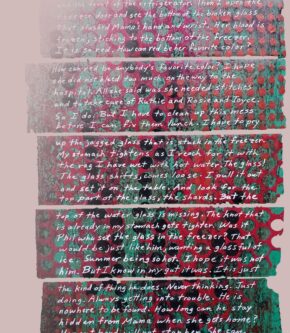 of the refrigerator. Then I open the
freezer door and see the bottom of the broken glass
have slashed Mama's hand and wrist. Her blood is
frozen, sticking to the bottom of the freezer.
It is so red. How can red be her favorite color?
How can red be anybody's favorite color? I hope
she did not bleed too much on the way to the
hospital. All she said was she needed stitches
and to take care of Ruthie and Rosie and Joyce.
So I do. But I have to clean up this mess
before I can fix them lunch. I have to pry
up the jagged glass that is stuck in the freezer.
My stomach tightens as I reach for it with
the rag I have wet with hot water. The glass!
The glass shifts, comes loose. I pull it out
and set it on the table. And look for the
top part of the glass, the shards. But the
top of the water glass is missing. The knot that
is already in my stomach gets tighter. Was it
Phil who set the glass in the freezer? That
would be just like him, wanting a glass full of
ice. Summer being so hot. I hope it was not
him. But I know in my gut it was. It is just
the kind of thing he does. Never thinking. Just
doing. Always getting into trouble. He is
nowhere to be found. How long can he stay
hidden from Mama when she gets home?
What She